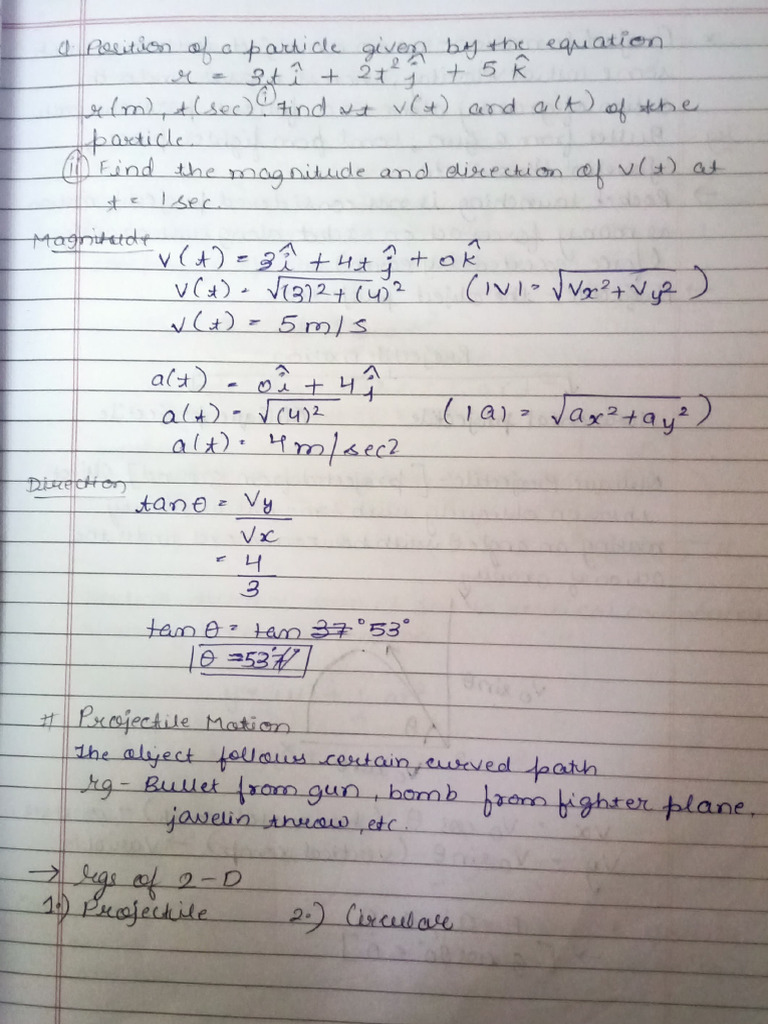 Q Position of a particle given by the equation
r = 3tî + 2t²ĵ + 5 k̂
r(m), t(sec). (i) Find v(t) and a(t) of the
particle.
(ii) Find the magnitude and direction of v(t) at
t = 1 sec.
Magnitude
v(t) = 3î + 4t ĵ + 0k̂
v(t) = √(3)² + (4)² (|v| = √Vx² + Vy²)
v(t) = 5 m/s
a(t) = 0î + 4ĵ
a(t) = √(4)² (|a| = √ax² + ay²)
a(t) = 4 m/sec2
Direction
tan θ = Vy
Vx
= 4
3
tan θ = tan 37° 53°
θ = 53°
# Projectile Motion
The object follows certain curved path
eg - Bullet from gun, bomb from fighter plane,
javelin throw, etc.
→ egs of 2-D
1.) Projectile 2.) Circular